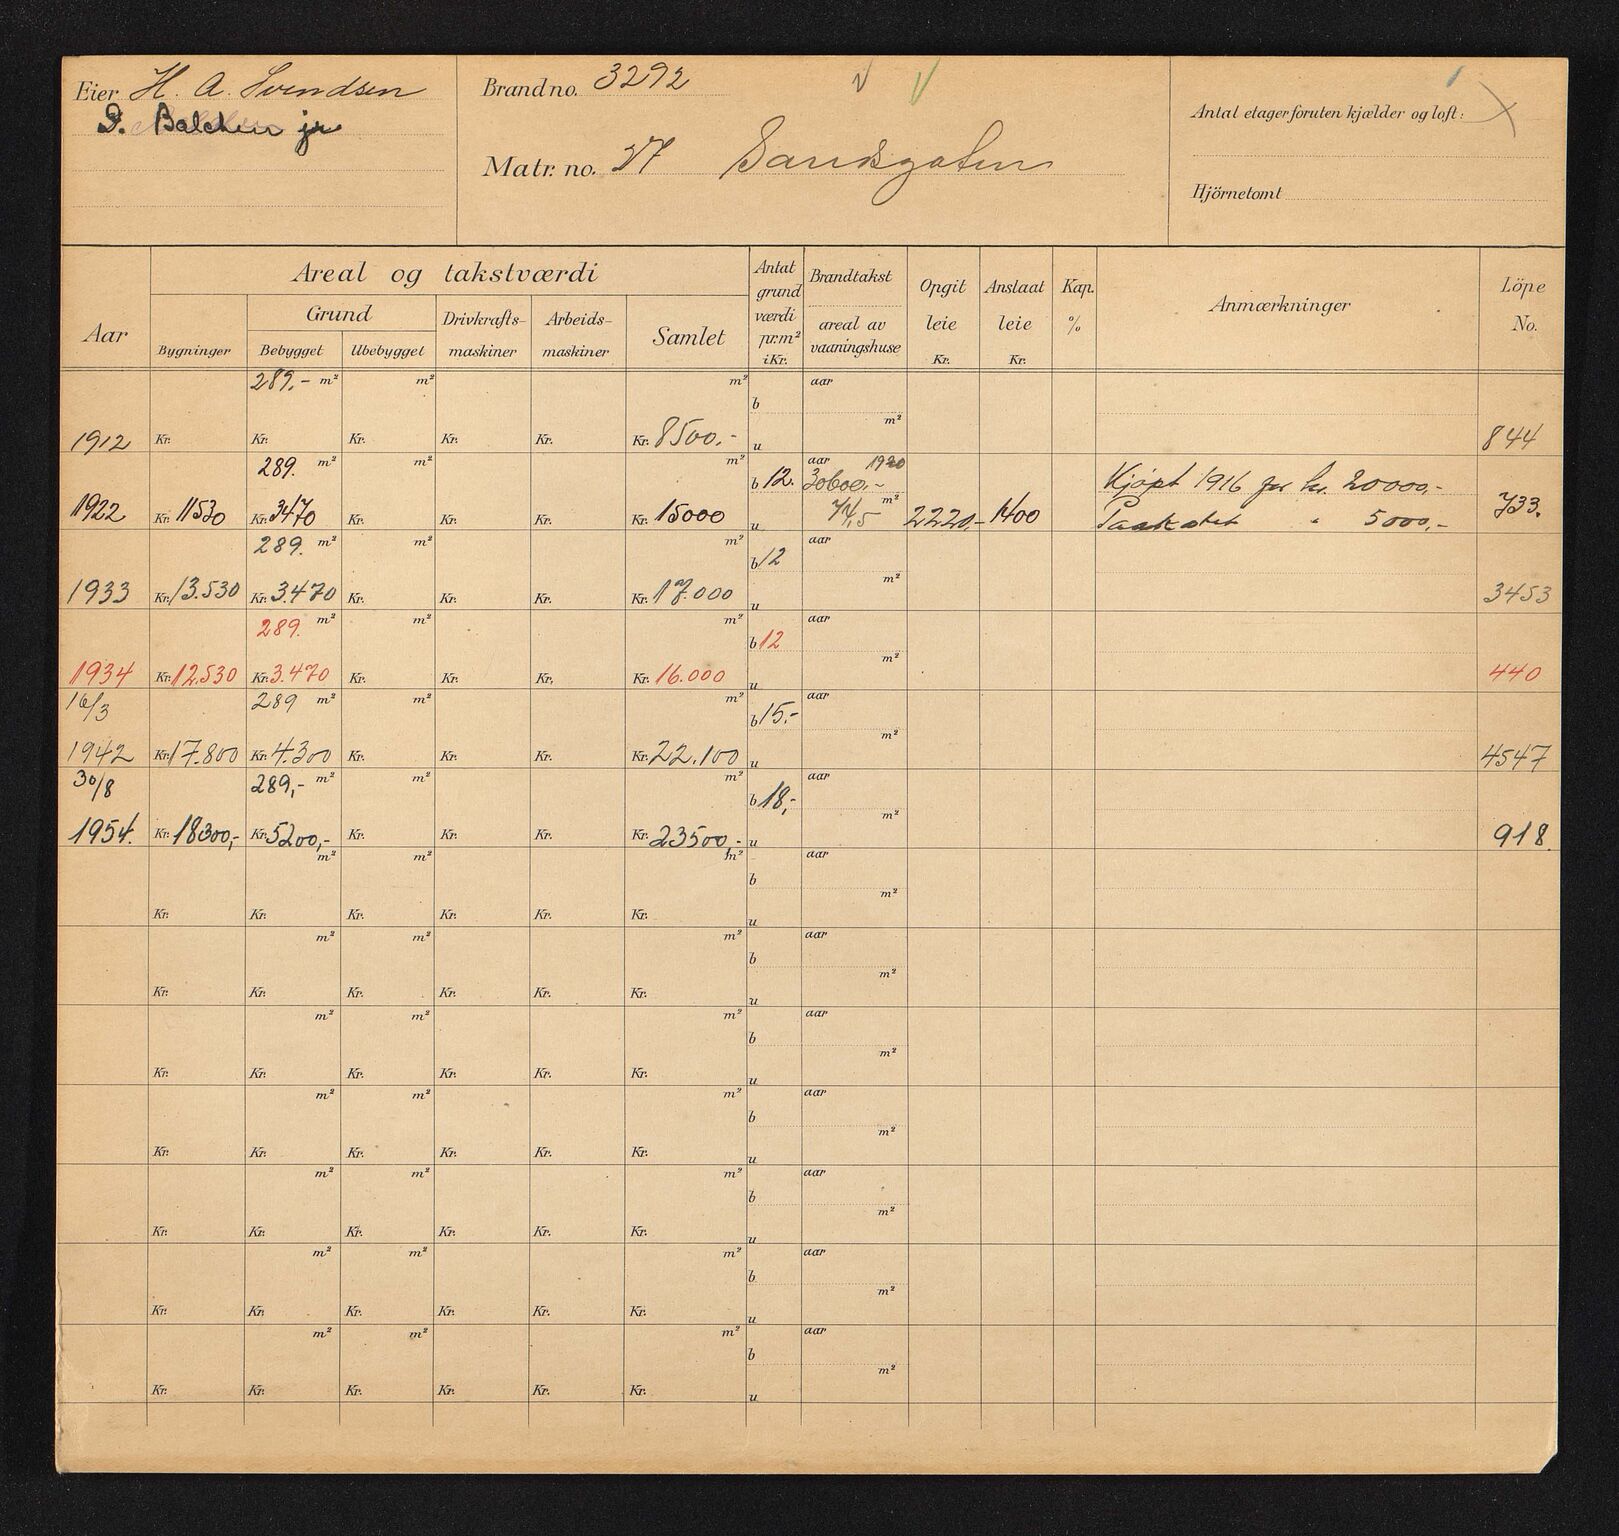 Eier H. A. Svendsen
S. Balchen jr
Brandno. 3292
Matr. no. 27 Sandsgaten
Antal etager foruten kjælder og loft:
Hjörnetomt
Aar
Areal og takstværdi
Bygninger
Grund
Bebygget Ubebygget
Drivkrafts-maskiner
Arbeids-maskiner
Samlet
Antat grund værdi pr. m² i Kr.
Brandtakst
areal av vaaningshuse
Opgit leie Kr.
Anslaat leie Kr.
Kap. %
Anmærkninger
Löpe No.
289,- m² m² m² aar
b m²
1912 Kr. Kr. Kr. Kr. Kr. Kr. 8500,- u 844
289. m² m² m² aar 1920
b 12. 30600,- Kjøpt 1916 for kr. 20000,-
1922 Kr. 11530 Kr. 3470 Kr. Kr. Kr. Kr. 15000 u 74,5 m² 2220,- 1400 Paakostet " 5000,- 733.
289. m² m² m² aar
b 12 m²
1933 Kr. 13.530 Kr. 3.470 Kr. Kr. Kr. Kr. 17.000 u 3453
289. m² m² m² aar
b 12 m²
1934 Kr. 12.530 Kr. 3.470 Kr. Kr. Kr. Kr. 16.000 u 440
16/3 289 m² m² m² aar
b 15,- m²
1942 Kr. 17.800 Kr. 4.300 Kr. Kr. Kr. Kr. 22.100 u 4547
30/8 289,- m² m² m² aar
b 18,- m²
1954. Kr. 18300,- Kr. 5200,- Kr. Kr. Kr. Kr. 23500,- u 918.
m² m² m² aar
b m²
Kr. Kr. Kr. Kr. Kr. Kr. u
m² m² m² aar
b m²
Kr. Kr. Kr. Kr. Kr. Kr. u
m² m² m² aar
b m²
Kr. Kr. Kr. Kr. Kr. Kr. u
m² m² m² aar
b m²
Kr. Kr. Kr. Kr. Kr. Kr. u
m² m² m² aar
b m²
Kr. Kr. Kr. Kr. Kr. Kr. u
m² m² m² aar
b m²
Kr. Kr. Kr. Kr. Kr. Kr. u
m² m² m² aar
b m²
Kr. Kr. Kr. Kr. Kr. Kr. u